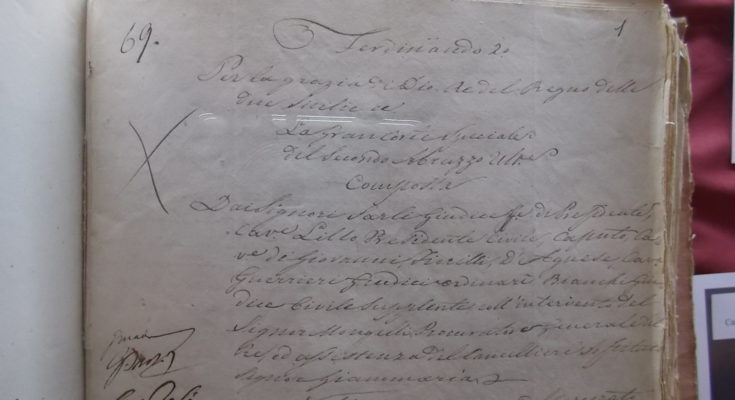 69.
1
Ferdinando 2o
Per la grazia di Dio Re del Regno delle
due Sicilie &
La Gran Corte Speciale
del Secondo Abruzzo Ult.
Composta
Dai Signori Giudice ff. di Presidente,
Cav. Lillo Presidente Civile, Caputo, Ca-
ve de Giovanni, D'Agnese, Cav.
Guerrieri Giudici ordinari, Bianchi Giu-
dice Civile supplente coll'intervento del
Signor Procuratore Generale del
Re, ed assistenza del Cancelliere
Signor Giammaria